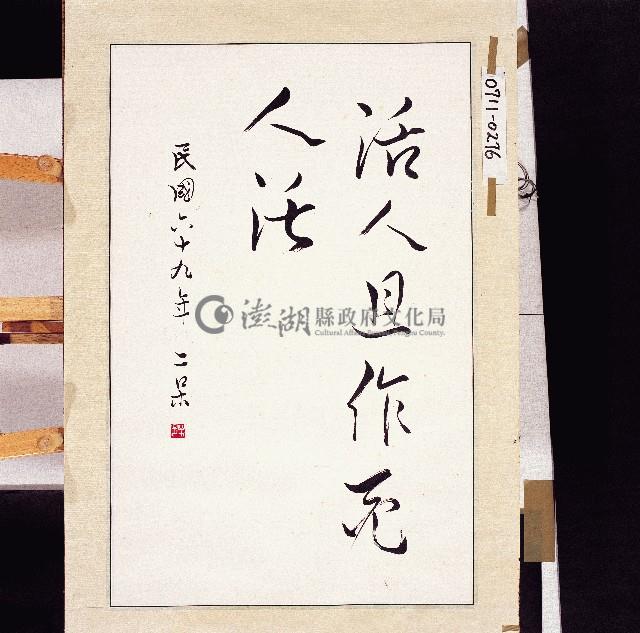 活人且作死
人活
民國六十九年 二呆
0711-0276
澎湖縣政府文化局
Cultural Affairs Bureau, Penghu County.